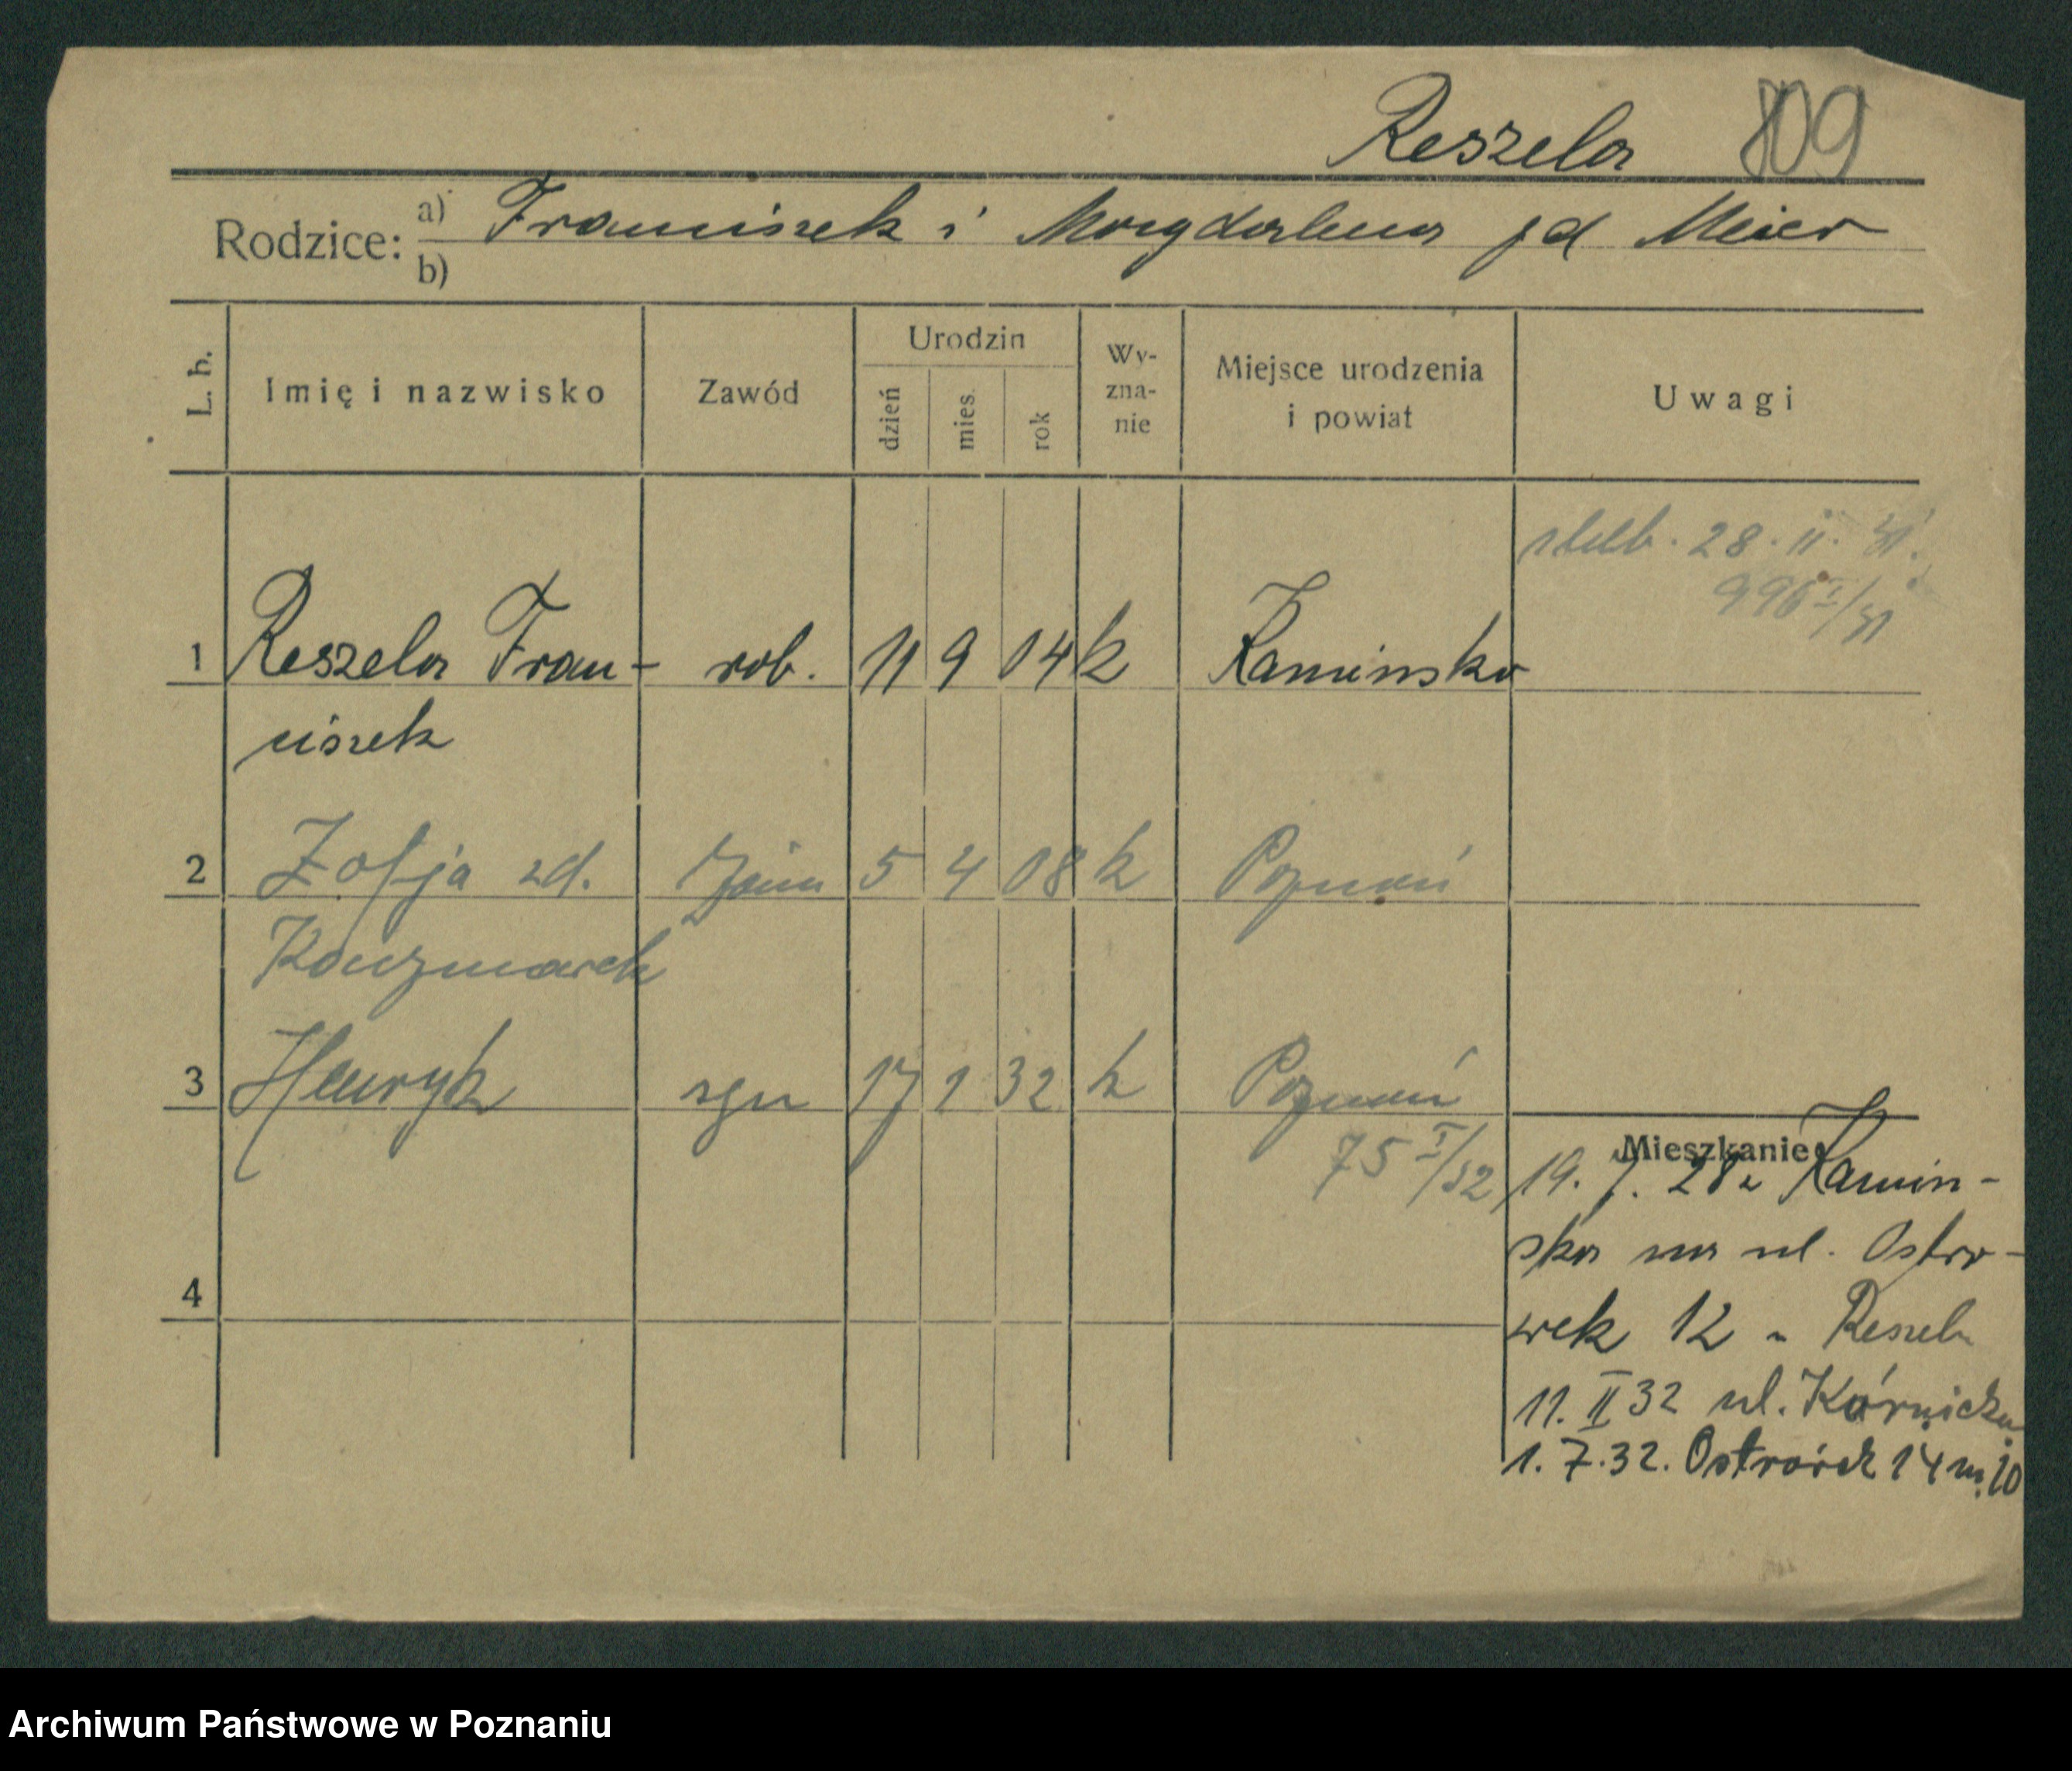 Reszela 809
Rodzice: a) Franciszek i Magdalena zd Meier
b)
L. b. Imię i nazwisko Zawód Urodzin dzień mies. rok Wy-zna-nie Miejsce urodzenia i powiat Uwagi
28. 11. 31.
996 I/31
1 Reszela Fran- rob. 11 9 04 k Kaminsko
ciszek
2 Zofja zd. żona 5 4 08 k Poznań
Kaczmarek
3 Henryk syn 17 1 32 k Poznań
75 I/32
Mieszkanie:
19. 7. 28 z Kamin-
ska na ul. Ostro-
4
wek 12 u Reszela
11. II 32 ul. Kórnicka
1. 7. 32. Ostrówek 14 m. 10
Archiwum Państwowe w Poznaniu